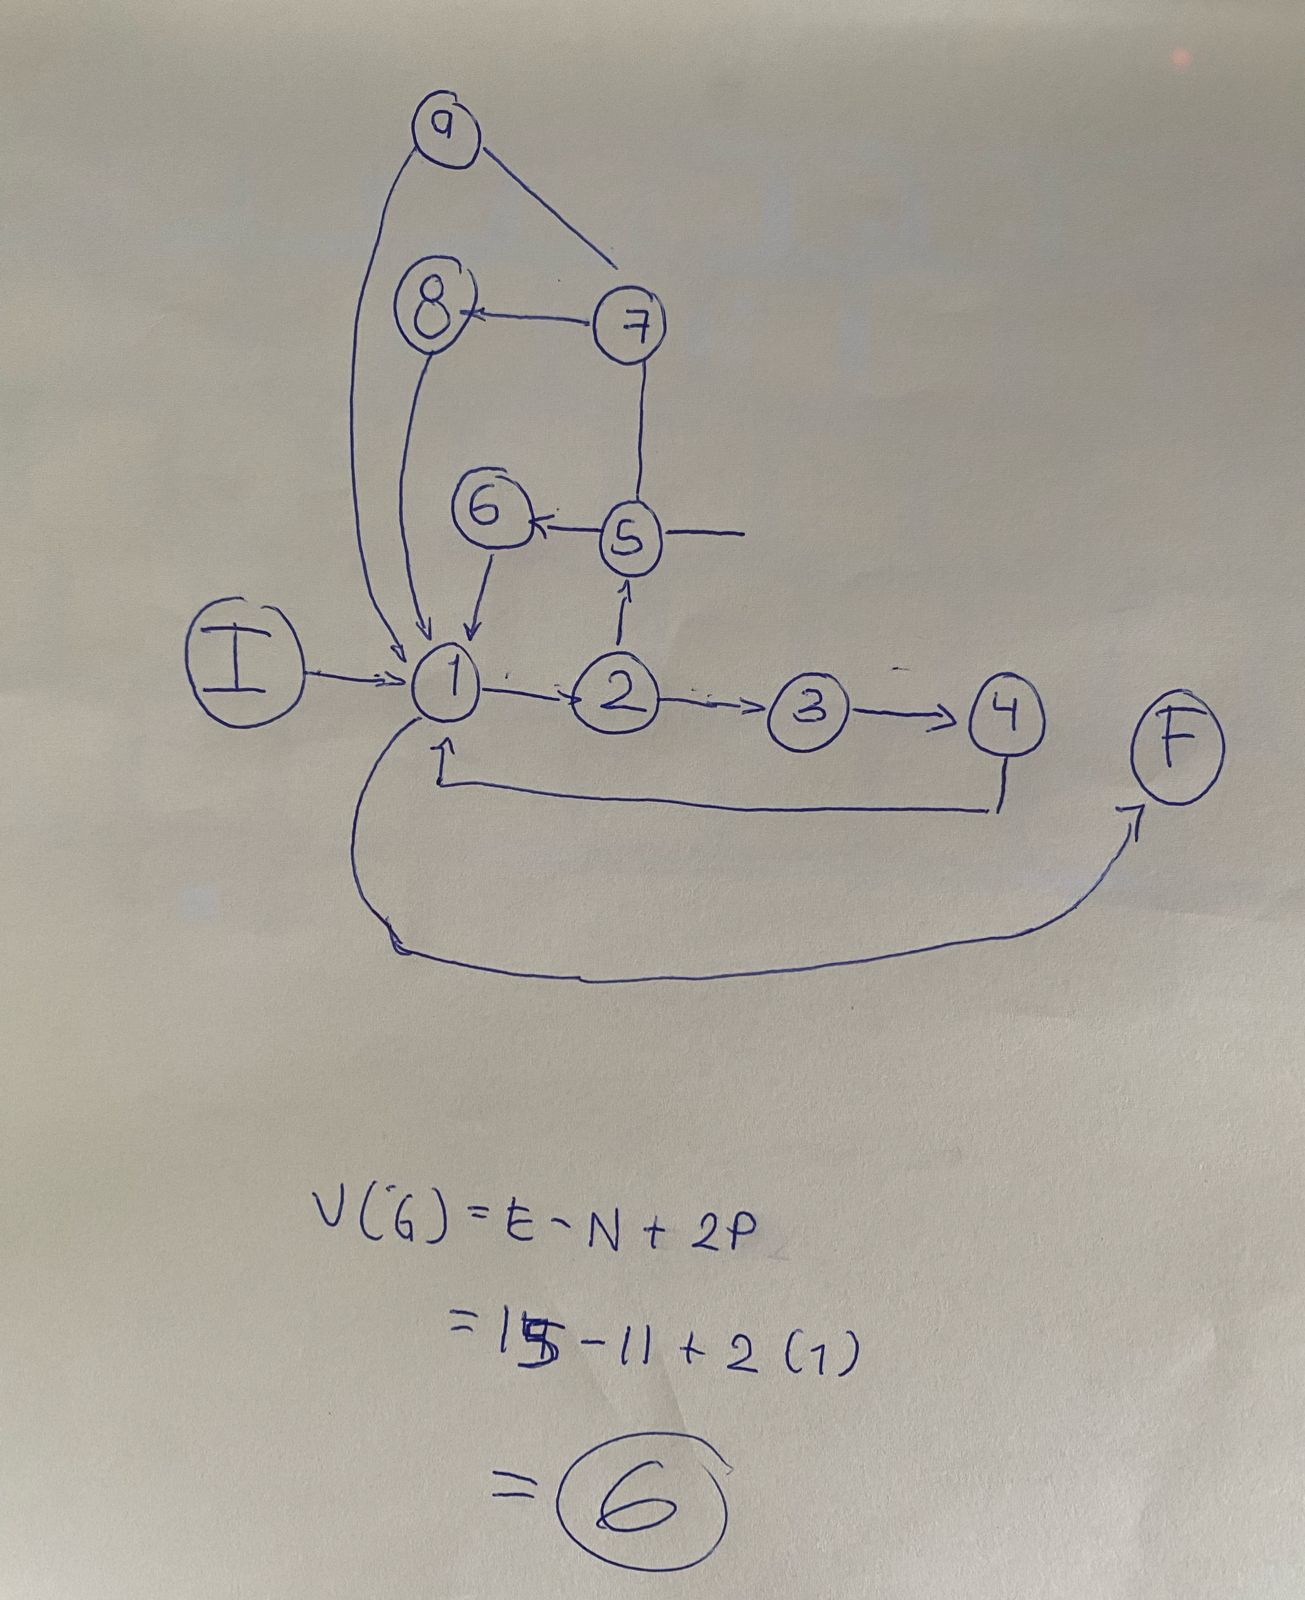 9
8
7
6
5
I
1
2
3
4
F
V(G) = E - N + 2P
= 15 - 11 + 2 (1)
= 6